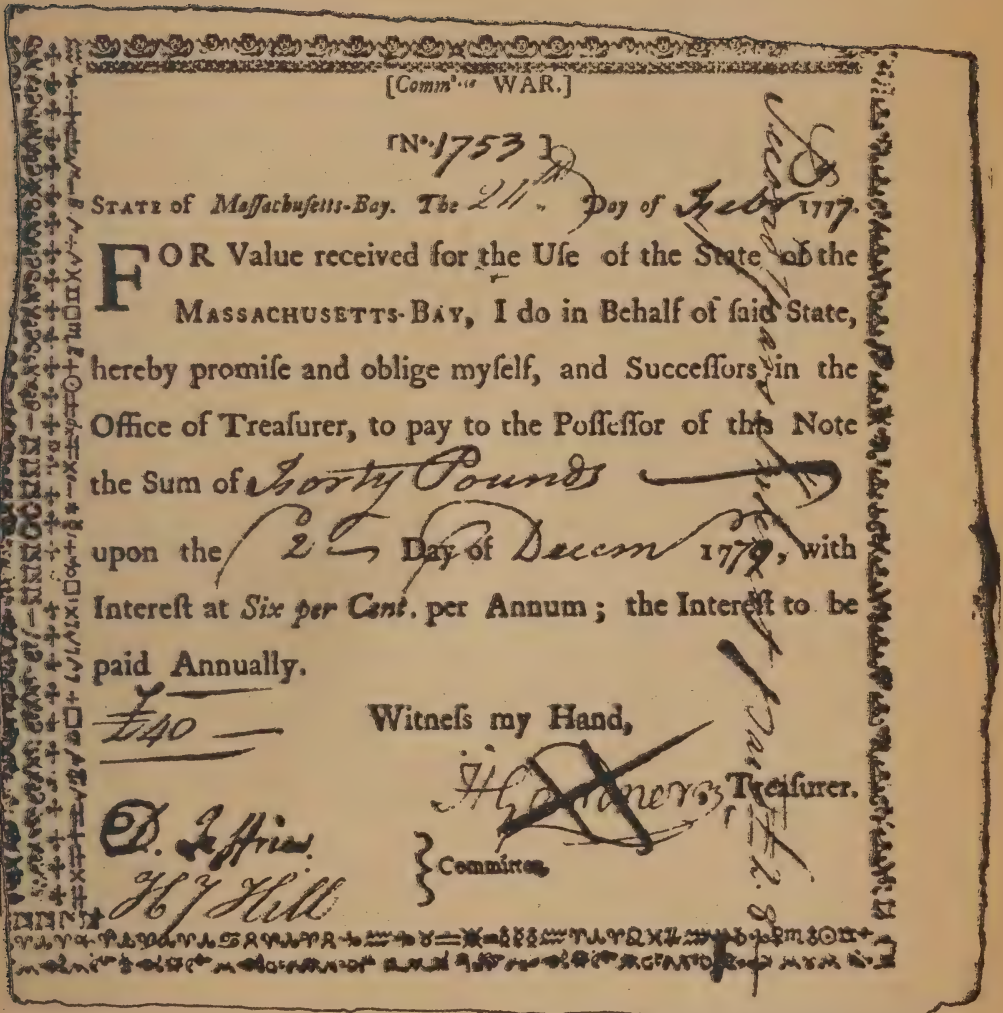 [Comm WAR.]
[No. 1753]
STATE of Maſſachuſetts-Bay. The 24th Day of Feby 1777.
FOR Value received for the Uſe of the State of the
MASSACHUSETTS-BAY, I do in Behalf of ſaid State,
hereby promiſe and oblige myſelf, and Succeſſors in the
Office of Treaſurer, to pay to the Poſſeſſor of this Note
the Sum of Forty Pounds
upon the 2 Day of Decem 1779, with
Intereſt at Six per Cent. per Annum; the Intereſt to be
paid Annually.
£40
Witneſs my Hand,
H Gardner, Treaſurer.
D. Jeffries
H J Hill
} Committee,
Second years Intereſt paid £2. 8